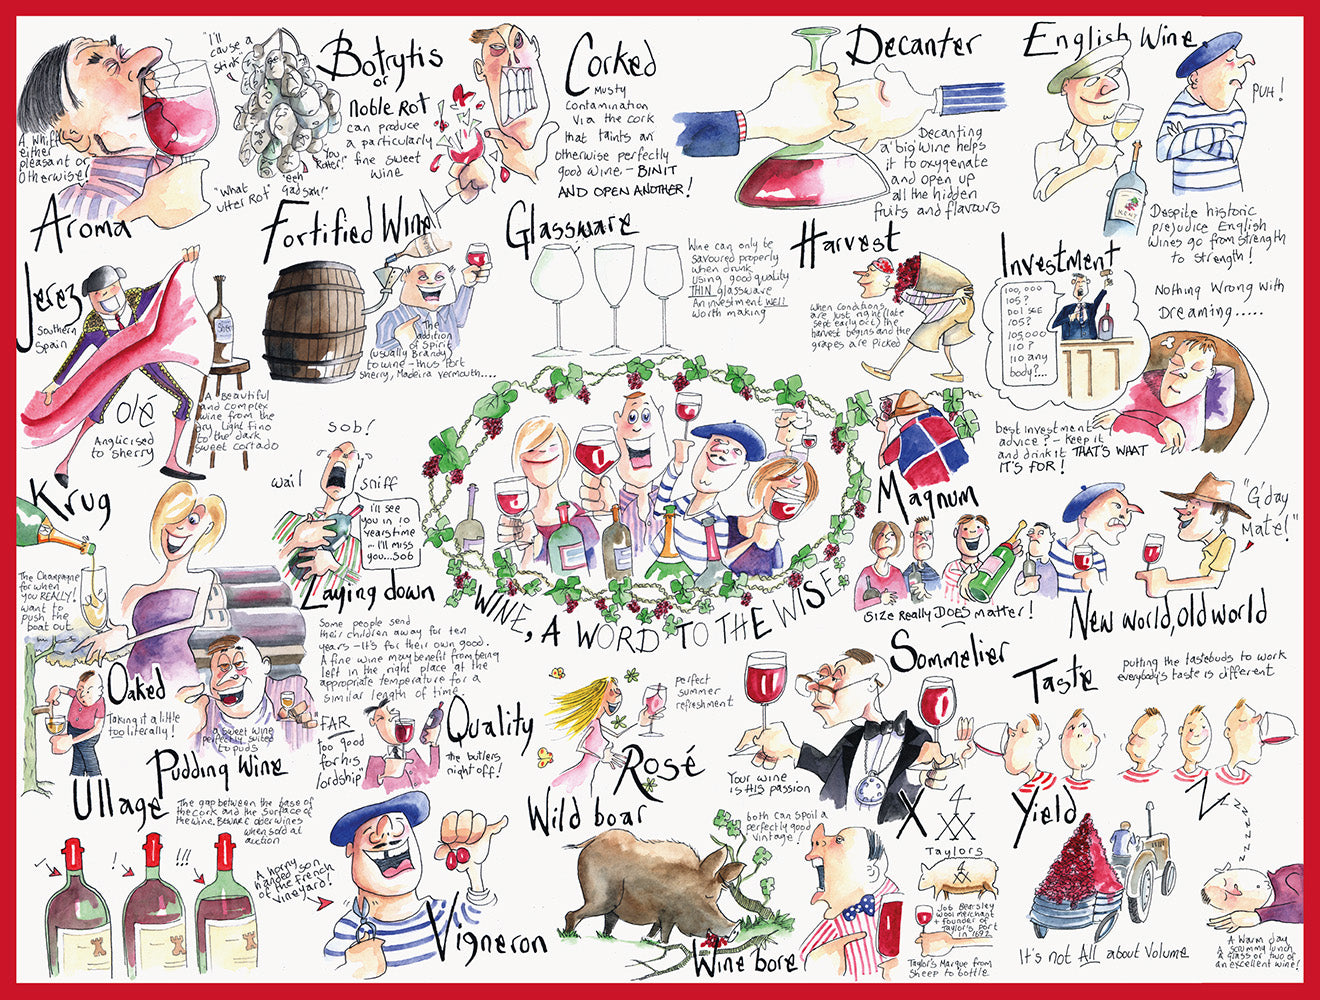 A whiff
either
pleasant or
otherwise
Aroma
"I'll
cause a
stink"
Botrytis
or
noble Rot
can produce
a particularly
fine sweet
wine
"You
Rotter!"
"eeh
Gadsah!"
"What
utter Rot"
Corked
Musty
Contamination
Via the cork
that taints an
otherwise perfectly
good wine. - BIN IT
AND OPEN ANOTHER!
Decanter
Decanting
a big wine helps
it to oxygenate
and open up
all the hidden
fruits and flavours
English Wine
PUH!
KENT
Despite historic
prejudice English
Wines go from strength
to strength!
Jerez
Southern
Spain
olé
Anglicised
to sherry
A Beautiful
and complex
wine from the
dry light fino
to the dark
sweet cortado
Fortified Wine
The
addition
of Spirit
(usually Brandy)
to wine - thus Port
Sherry, Madeira Vermouth.....
Glassware
Wine can only be
Savoured properly
when drunk
using good quality
THIN glassware
An investment WELL
worth making
Harvest
When conditions
are just right (late
Sept early Oct) the
harvest begins and the
grapes are picked
Investment
100,000
105?
Do I see
105?
105,000
110?
110 any
body?...
Nothing Wrong with
Dreaming.....
Best investment
advice? - Keep it
and drink it THAT'S WHAT
IT'S FOR!
Krug
The Champagne
for when
you REALLY!
want to
push the
boat out
Sob!
Wail
Sniff
I'll see
you in 10
years time
- I'll miss
you...SOB
Laying down
Some people send
their children away for ten
years - It's for their own good.
A fine wine may benefit from being
left in the right place at the
appropriate temperature for a
similar length of time.
WINE, A WORD TO THE WISE
Magnum
Size Really DOES matter!
"G'day
Mate!"
New world, old world
Oaked
Taking it a little
too literally!
a sweet wine
perfectly suited
to puds
Pudding Wine
"FAR
too good
for his
lordship"
Quality
the butlers
night off!
perfect
summer
refreshment
Rosé
Sommelier
Your wine
is HIS passion
Taste
putting the tastebuds to work
everybody's taste is different
Ullage
The gap between the base of
the cork and the surface of
the wine. Beware older wines
when sold at
auction
! !!!
A horny
handed son
of the French
vineyard!
Vigneron
Wild boar
both can spoil a
perfectly good
vintage!
Wine bore
X
4
XX
Taylors
Job Bearsley
Wool merchant
+ founder of
Taylor's Port
in 1692
Taylor's Marque from
Sheep to bottle
Yield
It's not All about Volume
Zzzzzzz
A warm day
A scrummy lunch
A glass or two of
an excellent wine!